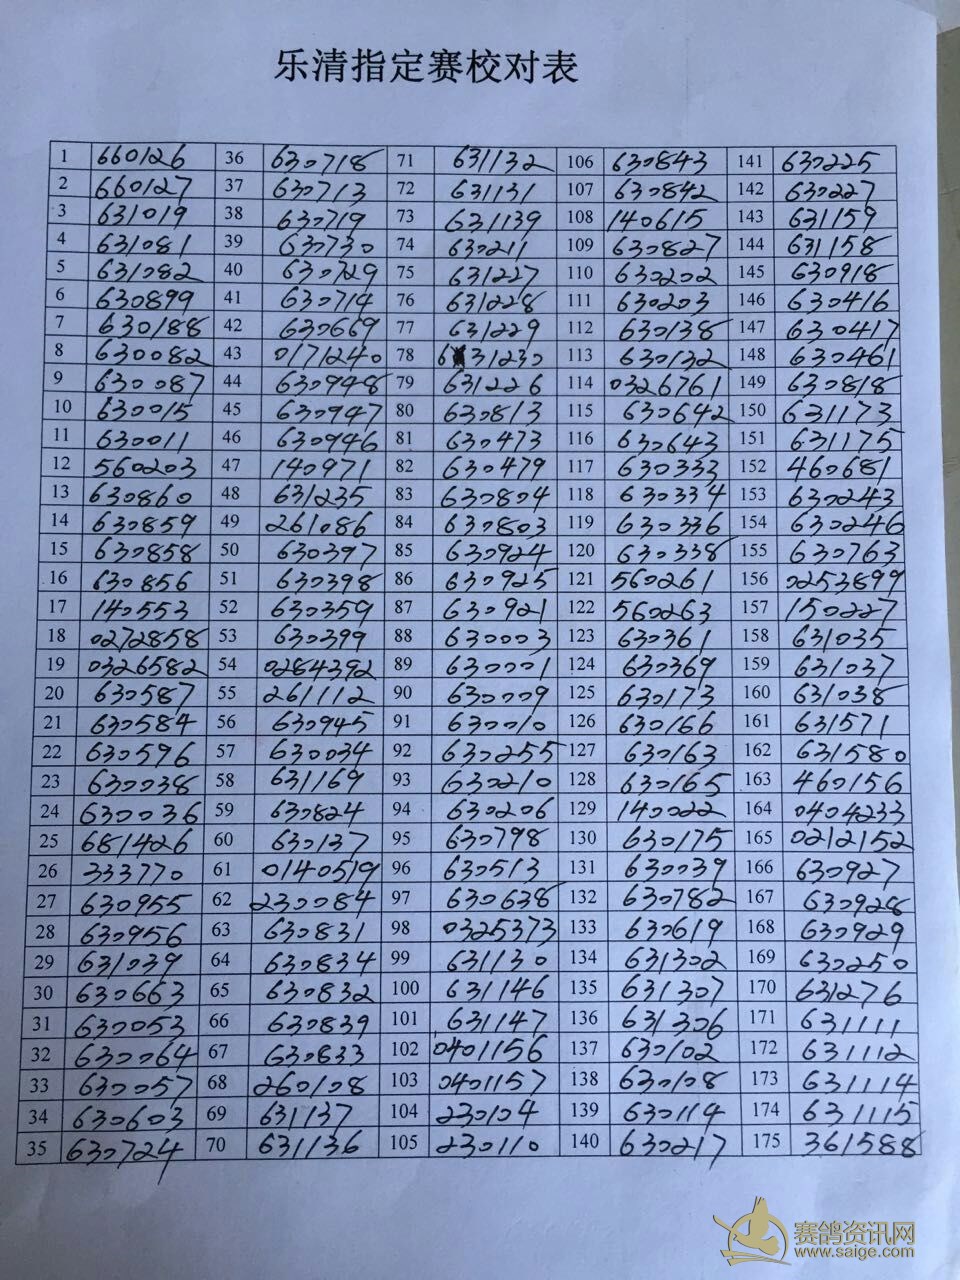 乐清指定赛校对表
1 660126 36 630718 71 631132 106 630843 141 630225
2 660127 37 630713 72 631131 107 630842 142 630227
3 631019 38 630719 73 631139 108 140615 143 631159
4 631081 39 630730 74 630211 109 630827 144 631158
5 631082 40 630729 75 631227 110 630202 145 630918
6 630899 41 630714 76 631228 111 630203 146 630416
7 630188 42 630669 77 631229 112 630138 147 630417
8 630082 43 0171240 78 631230 113 630132 148 630461
9 630087 44 630948 79 631226 114 0326761 149 630818
10 630015 45 630947 80 630813 115 630642 150 631173
11 630011 46 630946 81 630473 116 630643 151 631175
12 560203 47 140971 82 630479 117 630333 152 460681
13 630860 48 631235 83 630804 118 630334 153 630243
14 630859 49 261086 84 630803 119 630336 154 630246
15 630858 50 630397 85 630924 120 630338 155 630763
16 630856 51 630398 86 630925 121 560261 156 0253899
17 140553 52 630359 87 630921 122 560263 157 150227
18 0272858 53 630399 88 630003 123 630361 158 631035
19 0326582 54 0284392 89 630001 124 630369 159 631037
20 630587 55 261112 90 630009 125 630173 160 631038
21 630584 56 630945 91 630010 126 630166 161 631571
22 630596 57 630034 92 630255 127 630163 162 631580
23 630038 58 631169 93 630210 128 630165 163 460156
24 630036 59 630824 94 630206 129 140022 164 0404233
25 681426 60 630137 95 630798 130 630175 165 0212152
26 333770 61 0140519 96 630513 131 630039 166 630927
27 630955 62 230084 97 630638 132 630782 167 630928
28 630956 63 630831 98 0325373 133 630619 168 630929
29 631039 64 630834 99 631130 134 631302 169 630250
30 630663 65 630832 100 631146 135 631307 170 631276
31 630053 66 630839 101 631147 136 631306 171 631111
32 630064 67 630833 102 0401156 137 630102 172 631112
33 630057 68 260108 103 0401157 138 630108 173 631114
34 630603 69 631137 104 230104 139 630114 174 631115
35 630724 70 631136 105 230110 140 630217 175 361588
赛鸽资讯网
www.saige.com